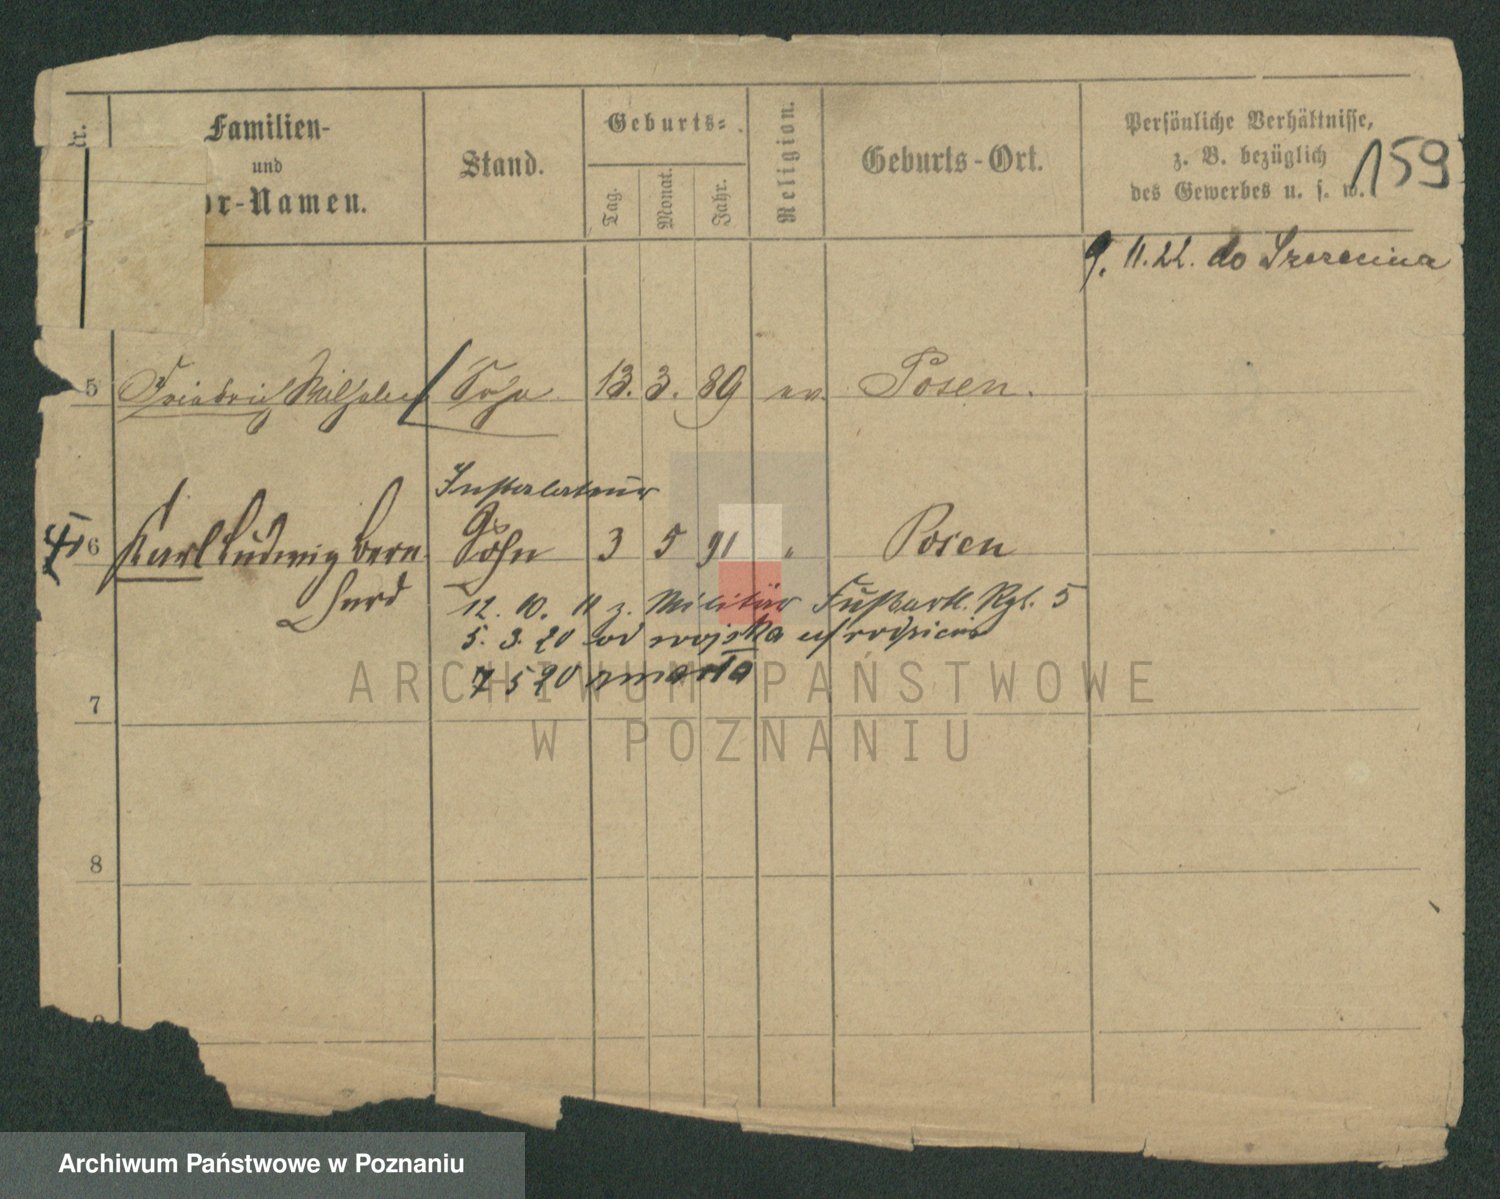 Familien-
und
or-Namen.
Stand.
Geburts-
Tag.
Monat.
Jahr.
Religion.
Geburts-Ort.
Persönliche Verhältnisse,
z. B. bezüglich
des Gewerbes u. s. w.
159
9. 11. 22. do
5 Friedrich Wilhelm Sohn 13. 3. 89 ev. Posen.
Installateur
6 Karl Ludwig Bern Sohn 3 5 91 " Posen
hard
12. 10. 11 z. Militär Fußartl. Rgt. 5
5. 3. 20 od wojska
7 5 20
7
8
ARCHIWUM PAŃSTWOWE
W POZNANIU
Archiwum Państwowe w Poznaniu